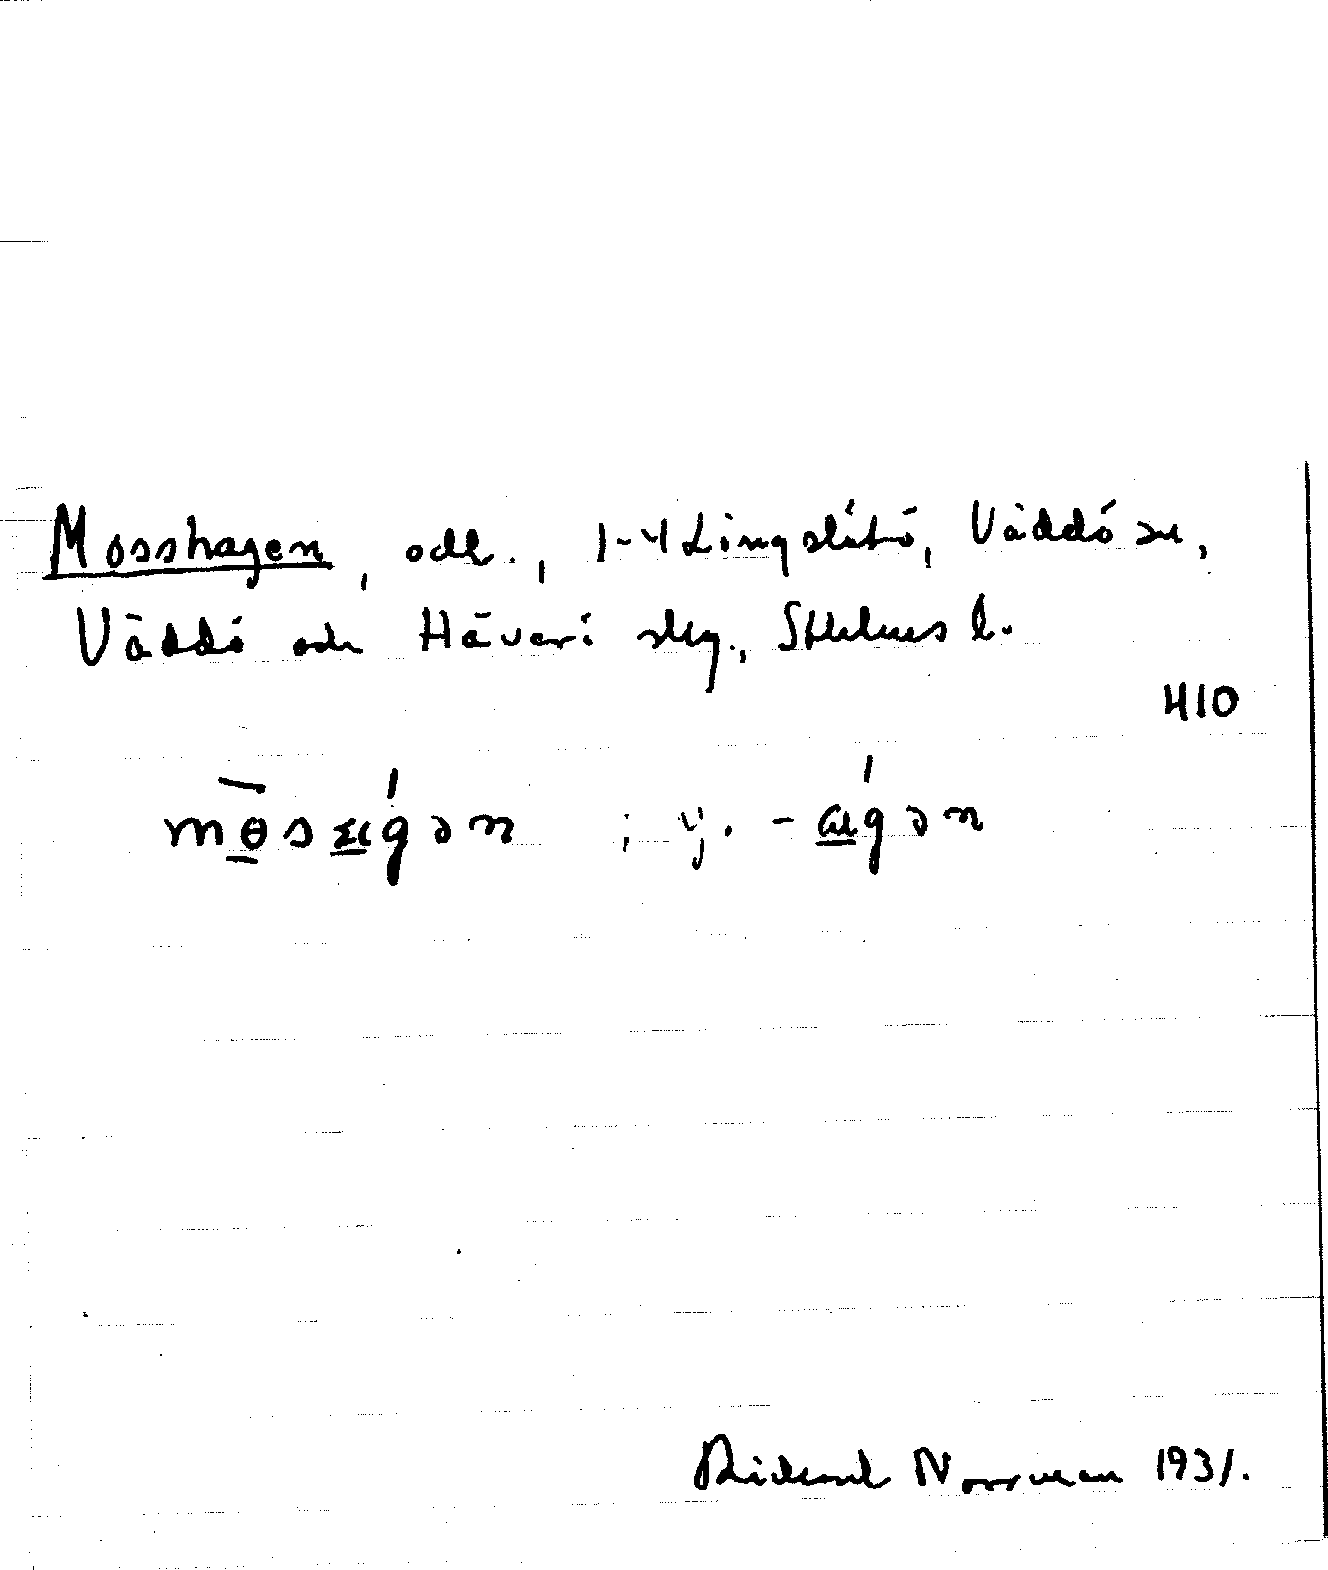 Mosshagen, odl., 1-4 Lingslätö, Väddö sn,
Väddö och Häverö skg., Sthlms l.
410
mɵsɑgən ; y. -ɑgən
Rickard Norrman 1931.